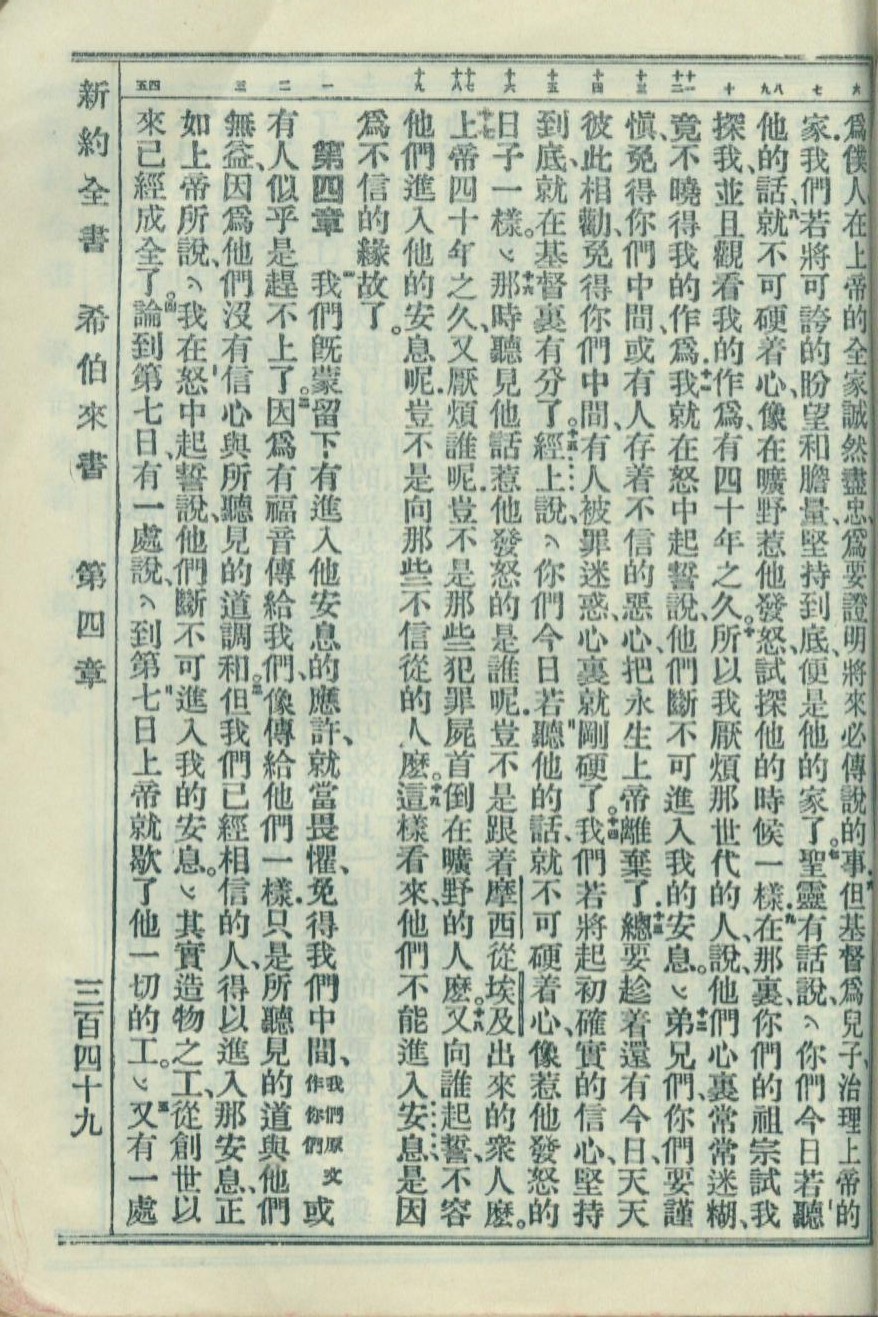 六 七 八九 十 十一十二 十三 十四 十五 十六 十七十八 十九 一 二 三 四五
爲僕人在上帝的全家誠然盡忠、爲要證明將來必傳說的事.六但基督爲兒子、治理上帝的
家.我們若將可誇的盼望和膽量、堅持到底、便是他的家了。七聖靈有話說、〈你們今日若聽
他的話、八就不可硬着心、像在曠野惹他發怒、試探他的時候一樣.九在那裏你們的祖宗試我
探我、並且觀看我的作爲、有四十年之久。十所以我厭煩那世代的人、說、他們心裏常常迷糊、
竟不曉得我的作爲.十一我就在怒中起誓說、他們斷不可進入我的安息。〉十二弟兄們、你們要謹
愼、免得你們中間、或有人存着不信的惡心、把永生上帝離棄了.十三總要趁着還有今日、天天
彼此相勸、免得你們中間、有人被罪迷惑、心裏就剛硬了。十四我們若將起初確實的信心、堅持
到底、就在基督裏有分了。十五經上說、〈你們今日若聽他的話、就不可硬着心、像惹他發怒的
日子一樣。〉十六那時聽見他話惹他發怒的是誰呢.豈不是跟着摩西從埃及出來的衆人麽。
十七上帝四十年之久、又厭煩誰呢.豈不是那些犯罪屍首倒在曠野的人麽。十八又向誰起誓、不容
他們進入他的安息呢.豈不是向那些不信從的人麽。十九這樣看來、他們不能進入安息、是因
爲不信的緣故了。
第四章 一我們旣蒙留下有進入他安息的應許、就當畏懼、免得我們中間、我們原文作你們 或
有人似乎是趕不上了。二因爲有福音傳給我們、像傳給他們一樣.只是所聽見的道與他們
無益、因爲他們沒有信心與所聽見的道調和。三但我們已經相信的人、得以進入那安息、正
如上帝所說、〈我在怒中起誓說、他們斷不可進入我的安息。〉其實造物之工、從創世以
來已經成全了。四論到第七日、有一處說、〈到第七日上帝就歇了他一切的工。〉五又有一處
新約全書 希伯來書 第四章 三百四十九